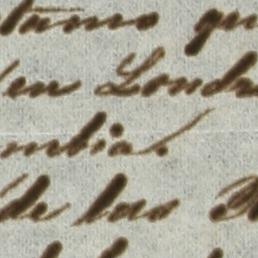 tamo qu
en Londr
mbia.
de las